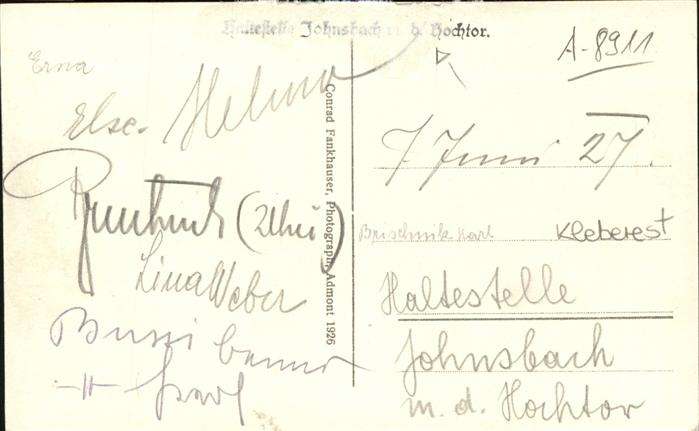 Haltestelle Johnsbach m. d. Hochtor.
A-8911
Erna
Else. Helma
(Uhu)
Lina Weber
Bussi
Conrad Fankhauser, Photograph, Admont 1926
7 Juni 27.
Karl Kleberest
Haltestelle
Johnsbach
m. d. Hochtor